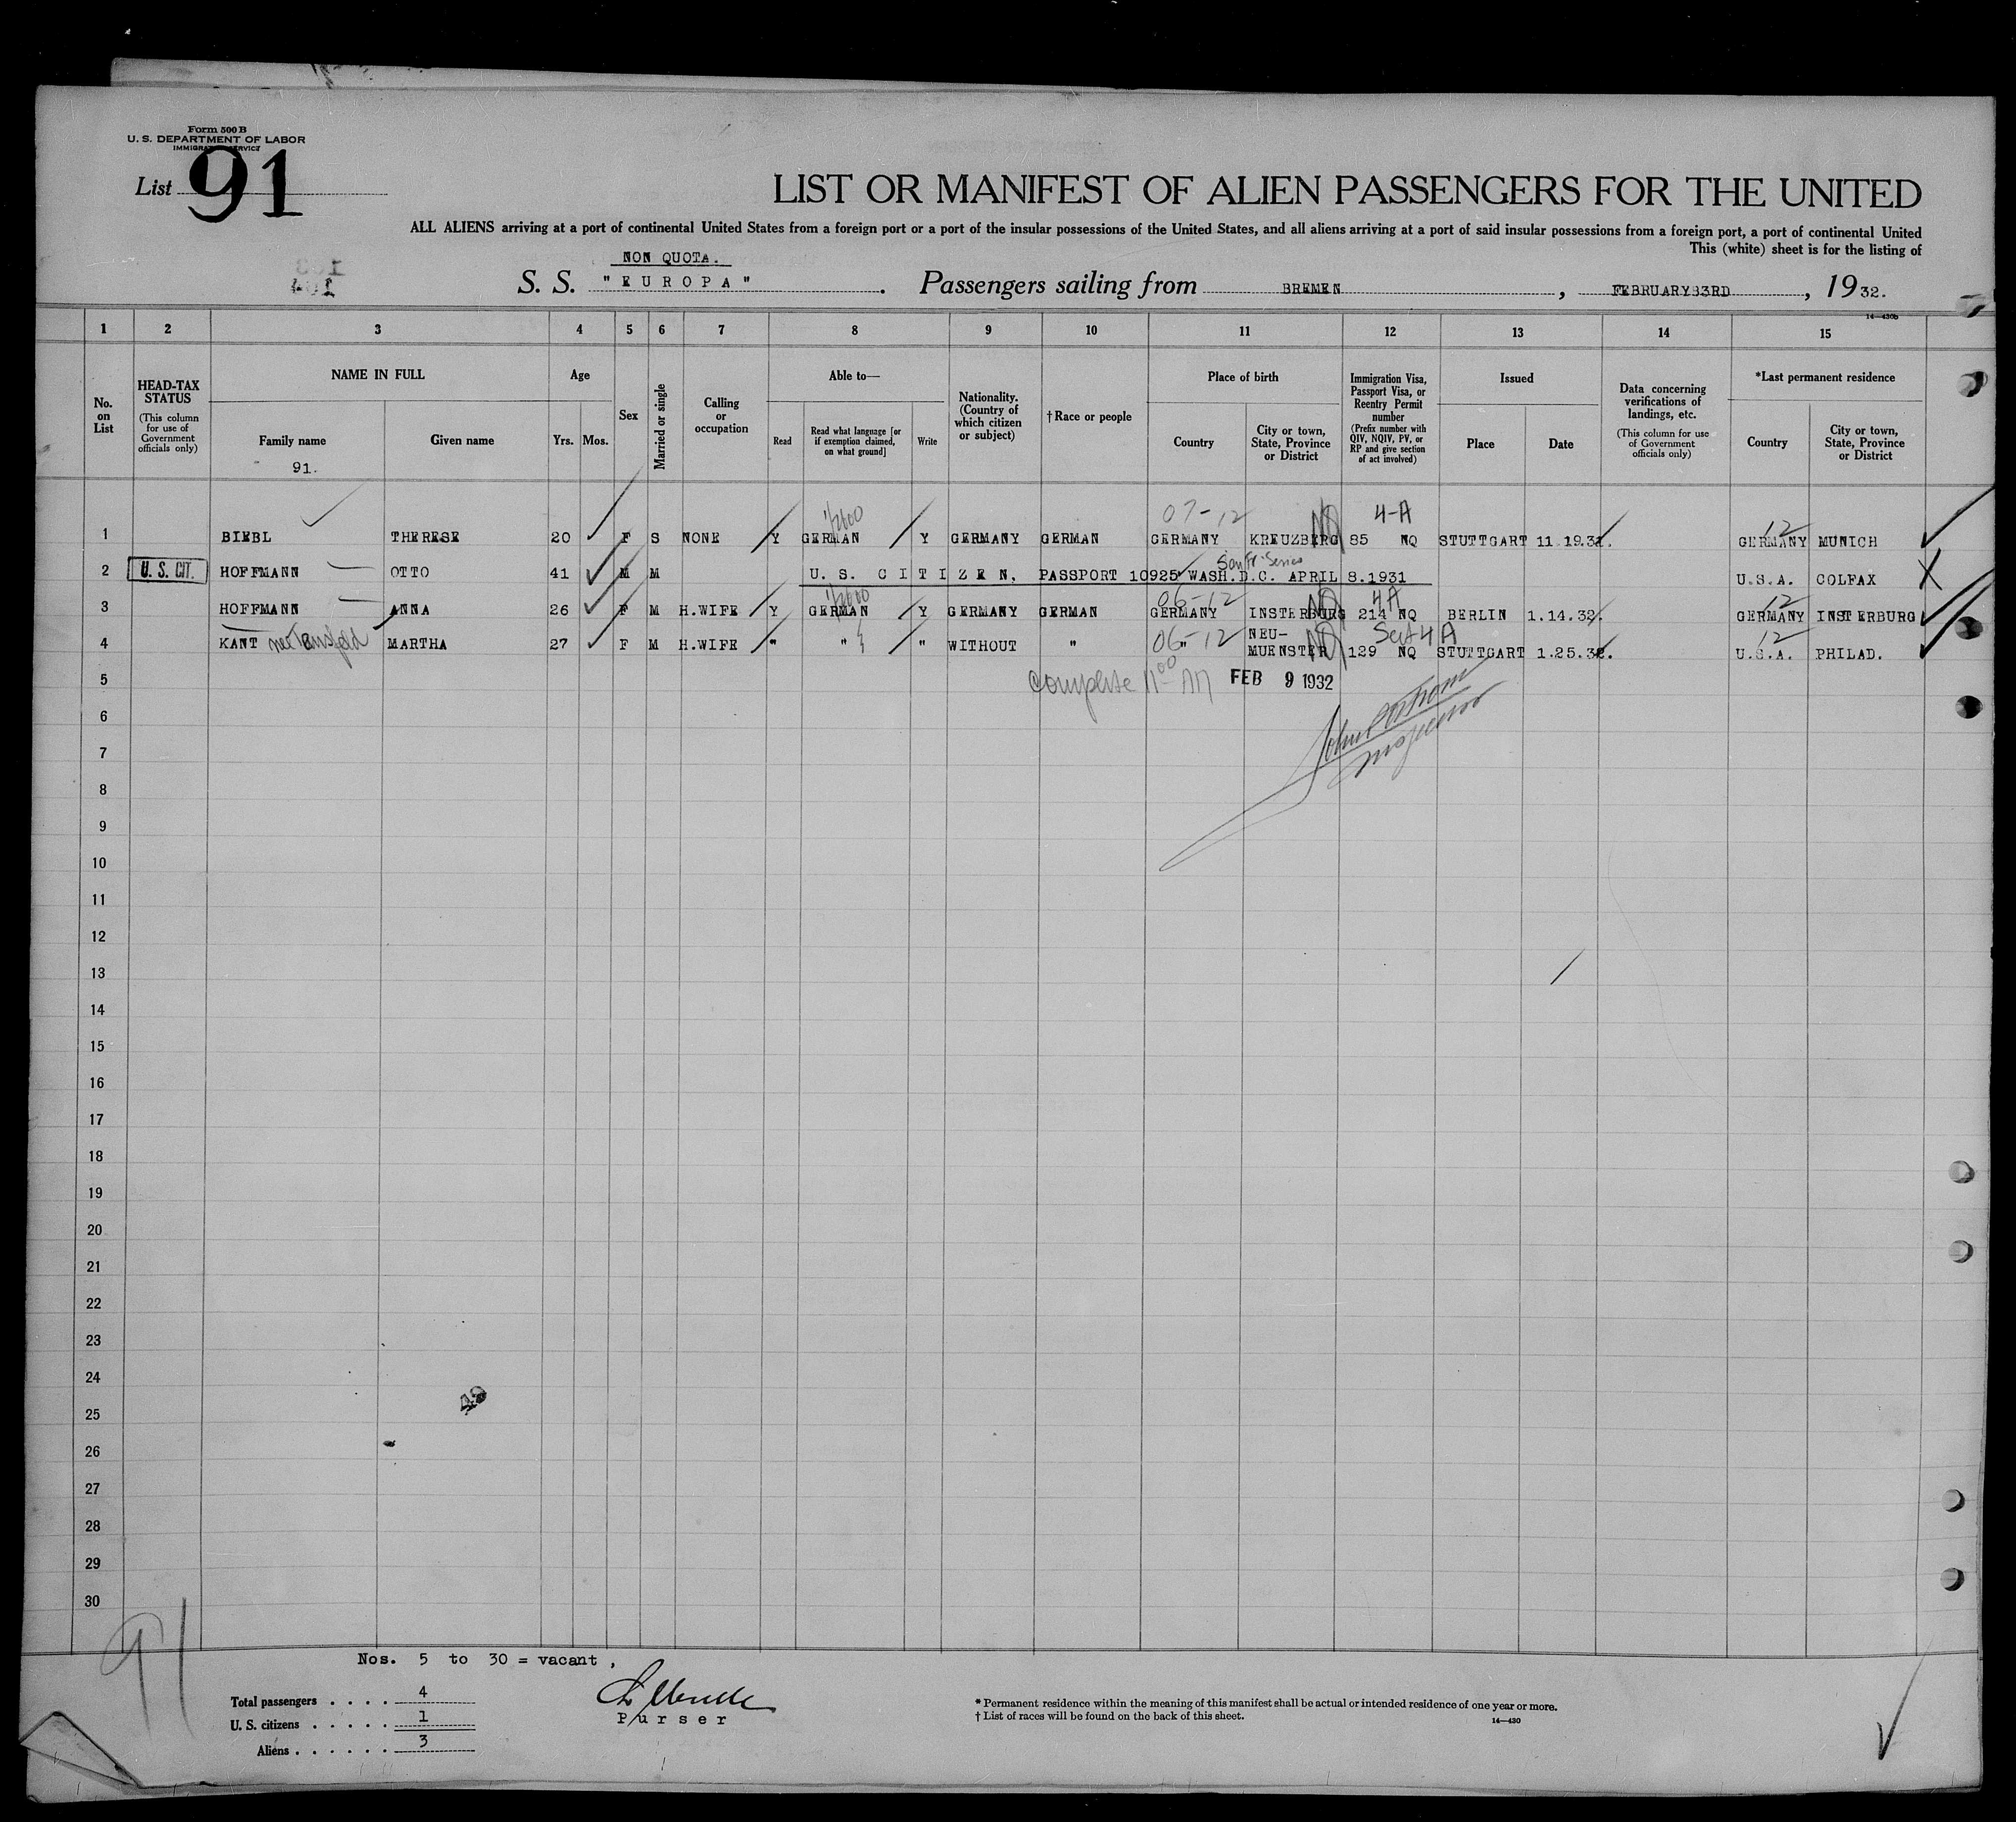 Form 500 B
U. S. DEPARTMENT OF LABOR
IMMIGRATION SERVICE
List 91
LIST OR MANIFEST OF ALIEN PASSENGERS FOR THE UNITED
ALL ALIENS arriving at a port of continental United States from a foreign port or a port of the insular possessions of the United States, and all aliens arriving at a port of said insular possessions from a foreign port, a port of continental United
This (white) sheet is for the listing of
NON QUOTA.
S. S. "EUROPA". Passengers sailing from BREMEN, FEBRUARY 3RD, 1932.
14—430b
1 2 3 4 5 6 7 8 9 10 11 12 13 14 15
No. on List
HEAD-TAX STATUS (This column for use of Government officials only)
NAME IN FULL
Family name
91.
Given name
Age
Yrs. Mos.
Sex
Married or single
Calling or occupation
Able to—
Read
Read what language [or if exemption claimed, on what ground]
Write
Nationality. (Country of which citizen or subject)
†Race or people
Place of birth
Country
City or town, State, Province or District
Immigration Visa, Passport Visa, or Reentry Permit number (Prefix number with QIV, NQIV, PV, or RP and give section of act involved)
Issued
Place
Date
Data concerning verifications of landings, etc. (This column for use of Government officials only)
*Last permanent residence
Country
City or town, State, Province or District
07-12 4-A 12
1 BIEBL THERESE 20 F S NONE Y GERMAN Y GERMANY GERMAN GERMANY KREUZBERG 85 NQ STUTTGART 11.19.31. GERMANY MUNICH
2 U. S. CIT. HOFFMANN OTTO 41 M M U. S. CITIZEN, PASSPORT 10925 WASH.D.C. APRIL 8.1931 U.S.A. COLFAX
06-12 4A 12
3 HOFFMANN ANNA 26 F M H.WIFE Y GERMAN Y GERMANY GERMAN GERMANY INSTERBURG 214 NQ BERLIN 1.14.32. GERMANY INSTERBURG
4 KANT nee MARTHA 27 F M H.WIFE " " " WITHOUT " " 06-12 NEU-MUENSTER 129 NQ Sect 4A STUTTGART 1.25.32. 12 U.S.A. PHILAD.
5 Complete 11 00 AM FEB 9 1932
6
7
8
9
10
11
12
13
14
15
16
17
18
19
20
21
22
23
24
25
26
27
28
29
30
91
Nos. 5 to 30 = vacant,
Total passengers .... 4
U. S. citizens ..... 1
Aliens ...... 3
Purser
* Permanent residence within the meaning of this manifest shall be actual or intended residence of one year or more.
† List of races will be found on the back of this sheet.
14—430